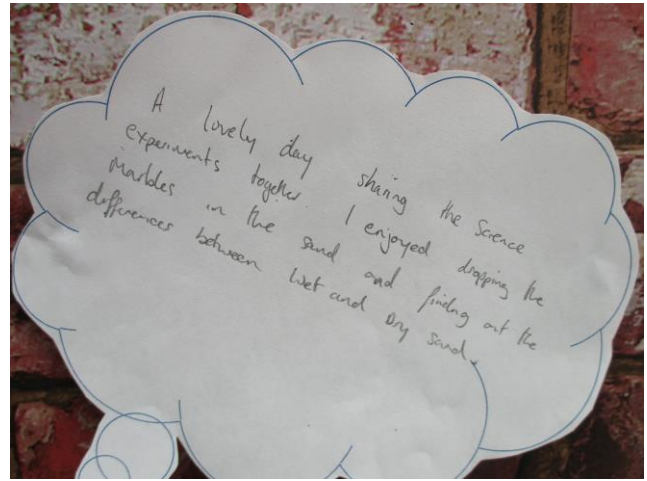 A lovely day sharing the Science
experiments together. I enjoyed dropping the
marbles in the sand and finding out the
differences between Wet and Dry sand.